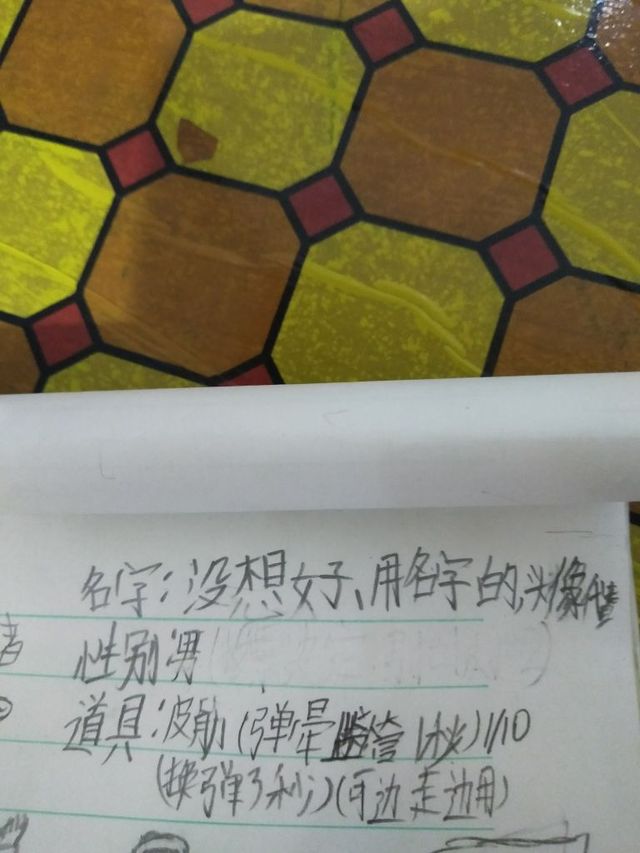 名字:没想好、用名字的头像代替
性别:男
道具:皮筋(弹晕监管1秒)1/10
(换弹3秒)(可边走边用)
者